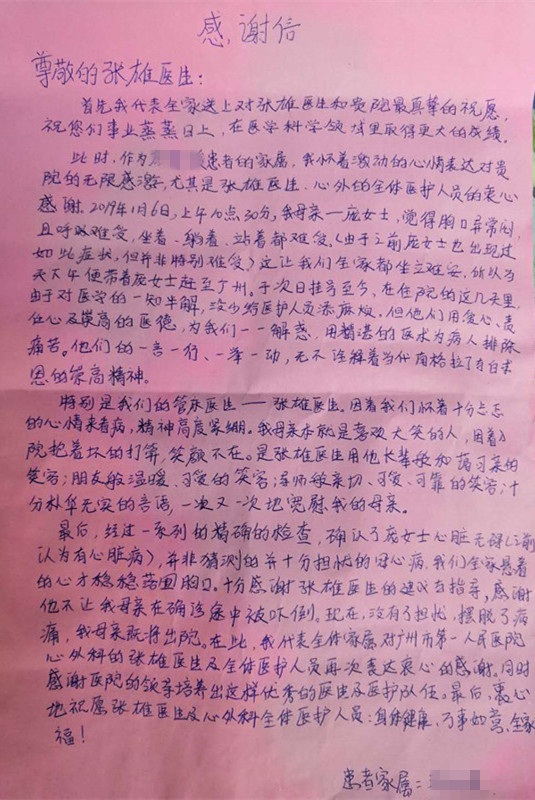 感谢信
尊敬的张雄医生:
首先我代表全家送上对张雄医生和贵院最真挚的祝愿,
祝您们事业蒸蒸日上,在医学科学领域里取得更大的成绩。
此时,作为患者的家属,我怀着激动的心情表达对贵
院的无限感激,尤其是张雄医生、心外的全体医护人员的衷心
感谢。2019年1月6日,上午10点30分,我母亲—庞女士,觉得胸口异常闷,
且呼吸难受,坐着、躺着、站着都难受。(由于之前庞女士也出现过
如此症状,但并非特别难受)这让我们全家都坐立难安,所以当
天下午便带着庞女士赶至广州。于次日挂号至今,在住院的这几天里,
由于对医学的一知半解,没少给医护人员添麻烦,但他们用爱心、责
任心及崇高的医德,为我们一一解惑,用精湛的医术为病人排除
痛苦。他们的一言一行、一举一动,无不诠释着当代南格拉丁与白求
恩的崇高精神。
特别是我们的管床医生——张雄医生。因着我们怀着十分忐忑
的心情来看病,精神高度紧绷。我母亲本就是喜欢大笑的人,因着入
院抱着坏的打算,笑颜不在。是张雄医生用他长辈般和蔼可亲的
笑容;朋友般温暖、可爱的笑容;导师般亲切、可爱、可靠的笑容;十
分朴华无实的言语,一次又一次地宽慰我的母亲。
最后,经过一系列的精确的检查,确认了庞女士心脏无碍(之前
认为有心脏病),并非猜测的并十分担忧的冠心病。我们全家悬着
的心才稳稳落回胸口。十分感谢张雄医生的建议与指导,感谢
他不让我母亲在确诊途中被吓倒。现在,没有了担忧,摆脱了病
痛,我母亲既将出院。在此,我代表全体家属对广州市第一人民医院
心外科的张雄医生及全体医护人员再次表达衷心的感谢。同时
感谢医院的领导培养出这样优秀的医生及医护队伍。最后,衷心
地祝愿张雄医生及心外科全体医护人员:身体健康,万事如意,全家
福!
患者家属: